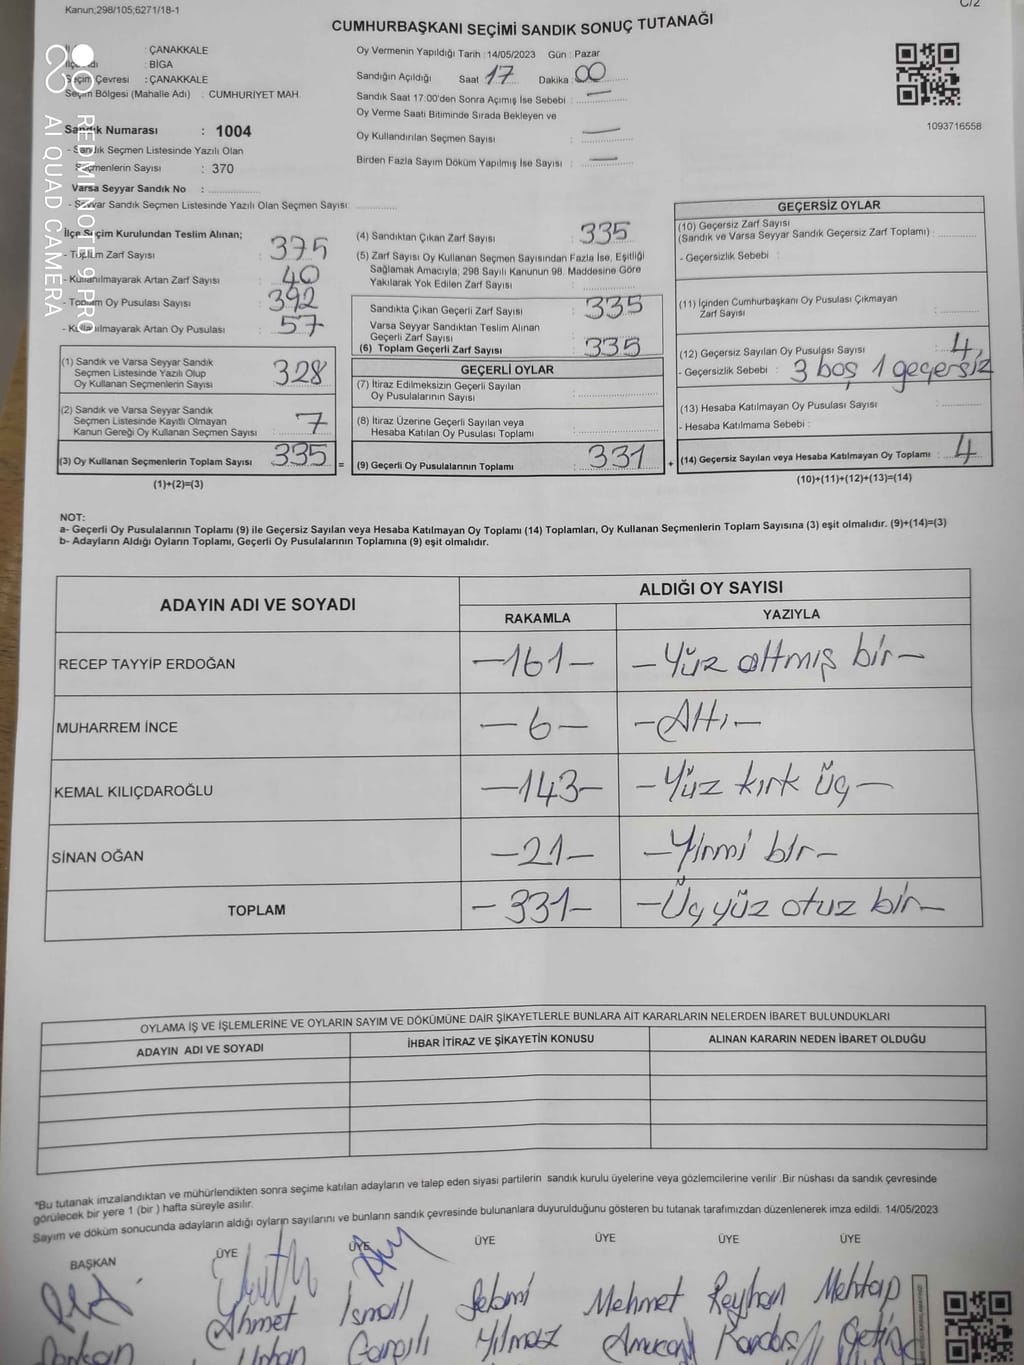 Kanun;298/105;6271/18-1
C/2
CUMHURBAŞKANI SEÇİMİ SANDIK SONUÇ TUTANAĞI
: ÇANAKKALE
: BİGA
Seçim Çevresi : ÇANAKKALE
Seçim Bölgesi (Mahalle Adı) : CUMHURİYET MAH.
Sandık Numarası : 1004
- Sandık Seçmen Listesinde Yazılı Olan
Seçmenlerin Sayısı : 370
Varsa Seyyar Sandık No :
- Seyyar Sandık Seçmen Listesinde Yazılı Olan Seçmen Sayısı:
Oy Vermenin Yapıldığı Tarih : 14/05/2023 Gün : Pazar
Sandığın Açıldığı Saat 17 Dakika : 00
Sandık Saat 17:00'den Sonra Açımış İse Sebebi : —
Oy Verme Saati Bitiminde Sırada Bekleyen ve
Oy Kullandırılan Seçmen Sayısı : —
Birden Fazla Sayım Döküm Yapılmış İse Sayısı : —
1093716558
REDMI NOTE 9 PRO
AI QUAD CAMERA
İlçe Seçim Kurulundan Teslim Alınan;
- Toplam Zarf Sayısı : 375
- Kullanılmayarak Artan Zarf Sayısı : 40
- Toplam Oy Pusulası Sayısı : 392
- Kullanılmayarak Artan Oy Pusulası : 57
(1) Sandık ve Varsa Seyyar Sandık
Seçmen Listesinde Yazılı Olup
Oy Kullanan Seçmenlerin Sayısı : 328
(2) Sandık ve Varsa Seyyar Sandık
Seçmen Listesinde Kayıtlı Olmayan
Kanun Gereği Oy Kullanan Seçmen Sayısı : 7
(3) Oy Kullanan Seçmenlerin Toplam Sayısı : 335 =
(1)+(2)=(3)
(4) Sandıktan Çıkan Zarf Sayısı : 335
(5) Zarf Sayısı Oy Kullanan Seçmen Sayısından Fazla İse, Eşitliği
Sağlamak Amacıyla; 298 Sayılı Kanunun 98. Maddesine Göre
Yakılarak Yok Edilen Zarf Sayısı :
Sandıkta Çıkan Geçerli Zarf Sayısı : 335
Varsa Seyyar Sandıktan Teslim Alınan
Geçerli Zarf Sayısı :
(6) Toplam Geçerli Zarf Sayısı : 335
GEÇERLİ OYLAR
(7) İtiraz Edilmeksizin Geçerli Sayılan
Oy Pusulalarının Sayısı :
(8) İtiraz Üzerine Geçerli Sayılan veya
Hesaba Katılan Oy Pusulası Toplamı :
(9) Geçerli Oy Pusulalarının Toplamı : 331 +
GEÇERSİZ OYLAR
(10) Geçersiz Zarf Sayısı
(Sandık ve Varsa Seyyar Sandık Geçersiz Zarf Toplamı) :
- Geçersizlik Sebebi :
(11) İçinden Cumhurbaşkanı Oy Pusulası Çıkmayan
Zarf Sayısı :
(12) Geçersiz Sayılan Oy Pusulası Sayısı : 4,
- Geçersizlik Sebebi : 3 boş 1 geçersiz
(13) Hesaba Katılmayan Oy Pusulası Sayısı :
- Hesaba Katılmama Sebebi :
(14) Geçersiz Sayılan veya Hesaba Katılmayan Oy Toplamı : 4
(10)+(11)+(12)+(13)=(14)
NOT:
a- Geçerli Oy Pusulalarının Toplamı (9) ile Geçersiz Sayılan veya Hesaba Katılmayan Oy Toplamı (14) Toplamları, Oy Kullanan Seçmenlerin Toplam Sayısına (3) eşit olmalıdır. (9)+(14)=(3)
b- Adayların Aldığı Oyların Toplamı, Geçerli Oy Pusulalarının Toplamına (9) eşit olmalıdır.
ADAYIN ADI VE SOYADI
ALDIĞI OY SAYISI
RAKAMLA YAZIYLA
RECEP TAYYİP ERDOĞAN —161— —Yüz altmış bir—
MUHARREM İNCE —6— —Altı—
KEMAL KILIÇDAROĞLU —143— —Yüz kırk üç—
SİNAN OĞAN —21— —Yirmi bir—
TOPLAM —331— —Üç yüz otuz bir—
OYLAMA İŞ VE İŞLEMLERİNE VE OYLARIN SAYIM VE DÖKÜMÜNE DAİR ŞİKAYETLERLE BUNLARA AİT KARARLARIN NELERDEN İBARET BULUNDUKLARI
ADAYIN ADI VE SOYADI İHBAR İTİRAZ VE ŞİKAYETİN KONUSU ALINAN KARARIN NEDEN İBARET OLDUĞU
"Bu tutanak imzalandıktan ve mühürlendikten sonra seçime katılan adayların ve talep eden siyasi partilerin sandık kurulu üyelerine veya gözlemcilerine verilir .Bir nüshası da sandık çevresinde
görülecek bir yere 1 (bir ) hafta süreyle asılır.
Sayım ve döküm sonucunda adayların aldığı oyların sayılarını ve bunların sandık çevresinde bulunanlara duyurulduğunu gösteren bu tutanak tarafımızdan düzenlenerek imza edildi. 14/05/2023
BAŞKAN ÜYE ÜYE ÜYE ÜYE ÜYE ÜYE
Ahmet İsmail Mehmet Reyhan Mehtap
Yılmaz